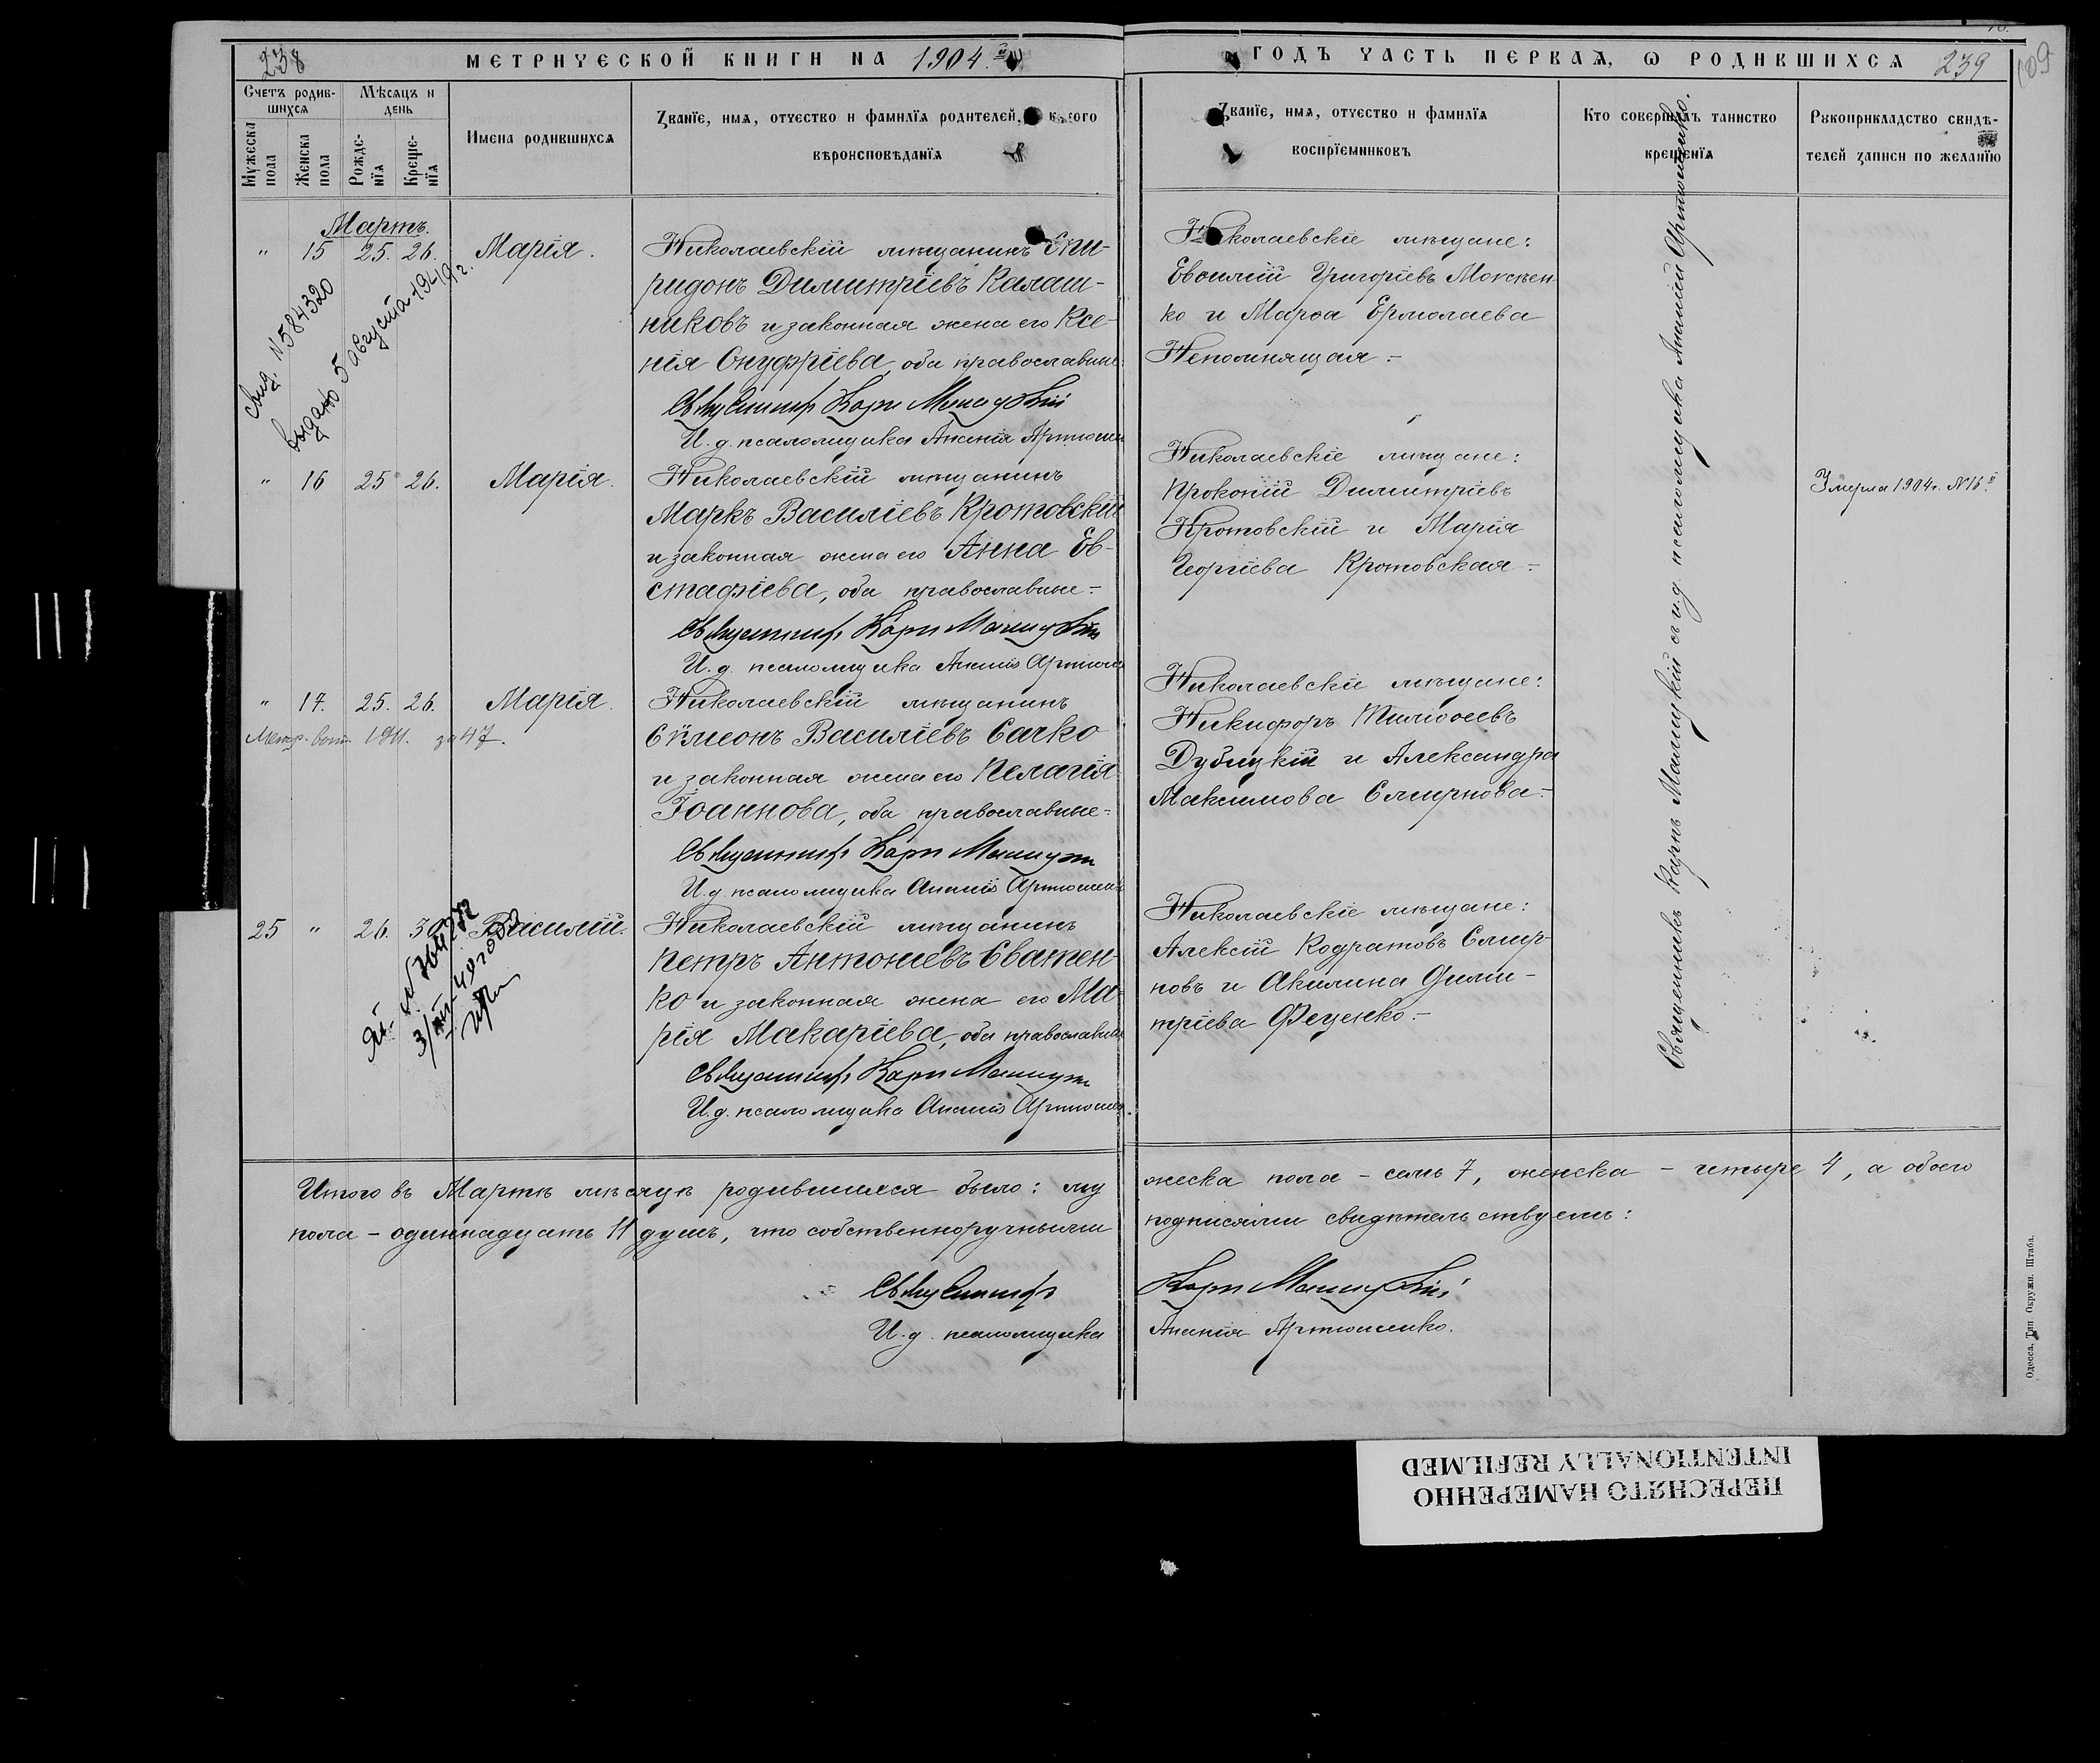 238
МЕТРИЧЕСКОЙ КНИГИ НА 1904.й
ГОДЪ ЧАСТЬ ПЕРВАЯ, Ѡ РОДИВШИХСЯ 239
109
Счетъ родив-
шихся
Мѣсяцъ и
день
Мужеска
пола
Женска
пола
Рожде-
нїя
Креще-
нїя
Имена родившихся
Званїе, имя, отчество и фамилїя родителей, и какого
вѣроисповѣданїя
Званїе, имя, отчество и фамилїя
воспрїемниковъ
Кто совершалъ таинство
крещенїя
Рукоприкладство свидѣ-
телей записи по желанїю
Мартъ.
" 15 25. 26. Марія.
Николаевскій мѣщанинъ Спи-
ридонъ Димитріевъ Калаш-
никовъ и законная жена его Ксе-
нія Онуфріева, оба православные
Священникъ Карпъ Мангускій
И. д. псаломщика Ананія Артюшен
Николаевскіе мѣщане:
Евѳимій Григоріевъ Мокѣен-
ко и Марѳа Ермолаева
Непомнящая.-
свид. №584320
выдано 5 августа 1949 г.
" 16 25 26. Марія.
Николаевскій мѣщанинъ
Маркъ Василіевъ Кротовскій
и законная жена его Анна Ев-
стафіева, оба православные.-
Священникъ Карпъ
И. д. псаломщика Ананія Артюшен
Николаевскіе мѣщане:
Прокопій Димитріевъ
Кротовскій и Марія
Георгіева Кротовская.-
Умерла 1904г. №16й
" 17. 25. 26. Марія.
Метр. вып. 1911. за 47.
Николаевскій мѣщанинъ
Сѵмеонъ Василіевъ Сачко
и законная жена его Пелагія
Іоаннова, оба православные.-
Священникъ Карпъ
И. д. псаломщика Ананія Артюшен
Николаевскіе мѣщане:
Никифоръ Тимоѳеевъ
Дубицкій и Александра
Максимова Смирнова.-
25 " 26. 30. Василій.
Николаевскій мѣщанинъ
Петръ Антоніевъ Сватен-
ко и законная жена его Ма-
рія Макаріева, оба православные
Священникъ Карпъ
И. д. псаломщика Ананія Артюшен
Николаевскіе мѣщане:
Алексій Кодратовъ Смир-
новъ и Акилина Дими-
тріева Феценко.-
Священникъ Карпъ съ и.д. псаломщика Ананіей Артюшенко.
Итого въ Мартѣ мѣсяцѣ родившихся было: му
жеска пола – семь 7, женска – четыре 4, а обоего
пола – одиннадцать 11 душъ, что собственноручными
подписями свидѣтельствуемъ:
Священникъ
Карпъ
И. д. псаломщика
Ананія Артюшенко.
Одесса, Тип. Окружн. Штаба.
ПЕРЕСНЯТО НАМЕРЕННО
INTENTIONALLY REFILMED